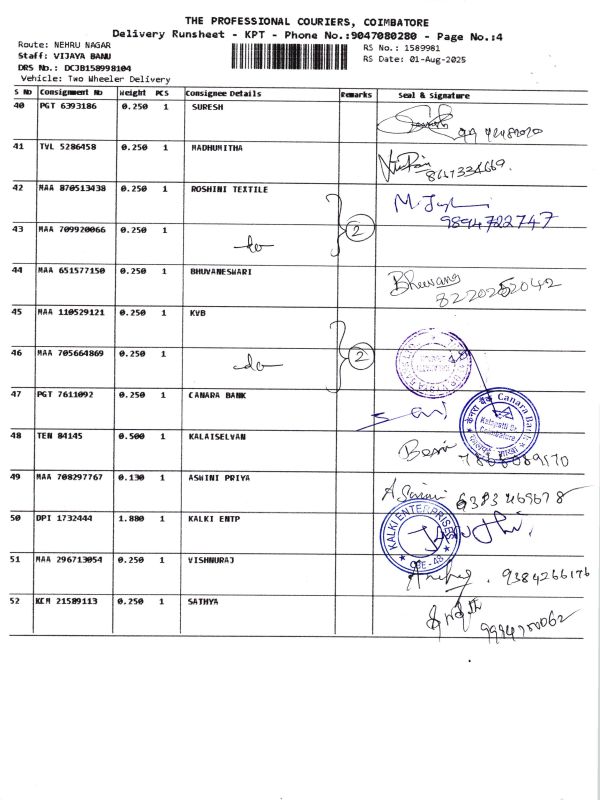 THE PROFESSIONAL COURIERS, COIMBATORE
Delivery Runsheet - KPT - Phone No.:9047080280 - Page No.:4
Route: NEHRU NAGAR
RS No.: 1589981
Staff: VIJAYA BANU
RS Date: 01-Aug-2025
DRS No.: DCJB158998104
Vehicle: Two Wheeler Delivery
S No Consignment No Weight PCS Consignee Details Remarks Seal & Signature
40 PGT 6393186 0.250 1 SURESH
41 TVL 5286458 0.250 1 MADHUMITHA
42 MAA 870513438 0.250 1 ROSHINI TEXTILE
9894722747
43 MAA 709920066 0.250 1 do 2
44 MAA 651577150 0.250 1 BHUVANESWARI Bhuvana
8220252042
45 MAA 110529121 0.250 1 KVB
46 MAA 705664869 0.250 1 do 2
47 PGT 7611092 0.250 1 CANARA BANK
केनरा बैंक Canara Bank
Kalapatti Br.
Coimbatore
48 TEN 84145 0.500 1 KALAISELVAN
49 MAA 708297767 0.130 1 ASWINI PRIYA
6383469678
50 DPI 1732444 1.880 1 KALKI ENTP
KALKI ENTERPRISES
CBE - 48
51 MAA 296713054 0.250 1 VISHNURAJ
9384266176
52 KCM 21589113 0.250 1 SATHYA